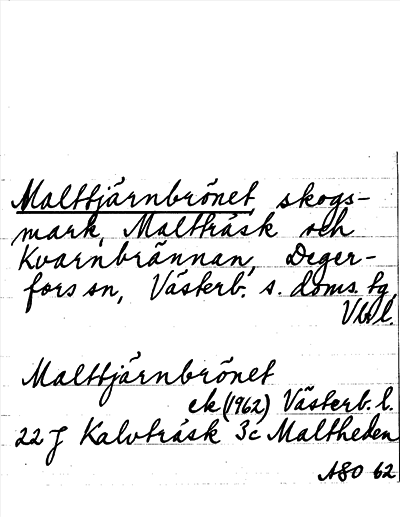 Malttjärnbrönet, skogs-
mark, Maltträsk och
Kvarnbrännan, Deger-
fors sn, Västerb. s. doms. tg,
Vbl.
Malttjärnbrönet
ek (1962) Västerb. l.
22 J Kalvträsk 3c Maltheden
ASO 62